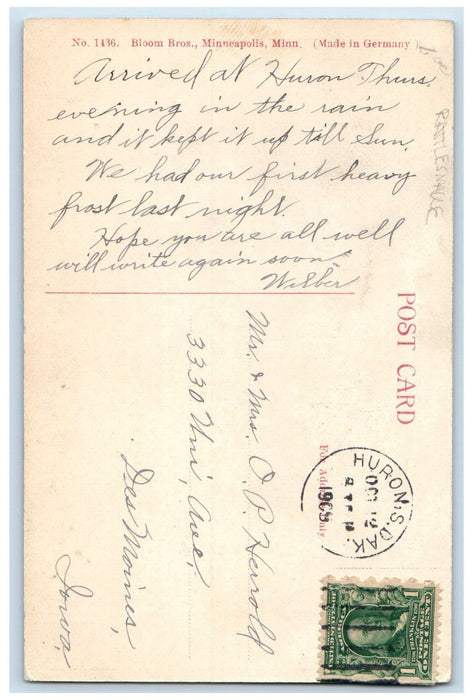 No. 1436. Bloom Bros., Minneapolis, Minn. (Made in Germany)
Arrived at Huron Thurs.
evening in the rain
and it kept it up till Sun.
We had our first heavy
frost last night.
Hope you are all well
will write again soon
Wilber
RATTLESNAKE
POST CARD
For Address Only.
Mr. & Mrs. O. P. Herrold
3330 Uni, Ave,
Des Moines,
Iowa,
HURON, S. DAK.
OCT 12
1909
UNITED STATES OF AMERICA
FRANKLIN
POSTAGE
1 ONE CENT 1